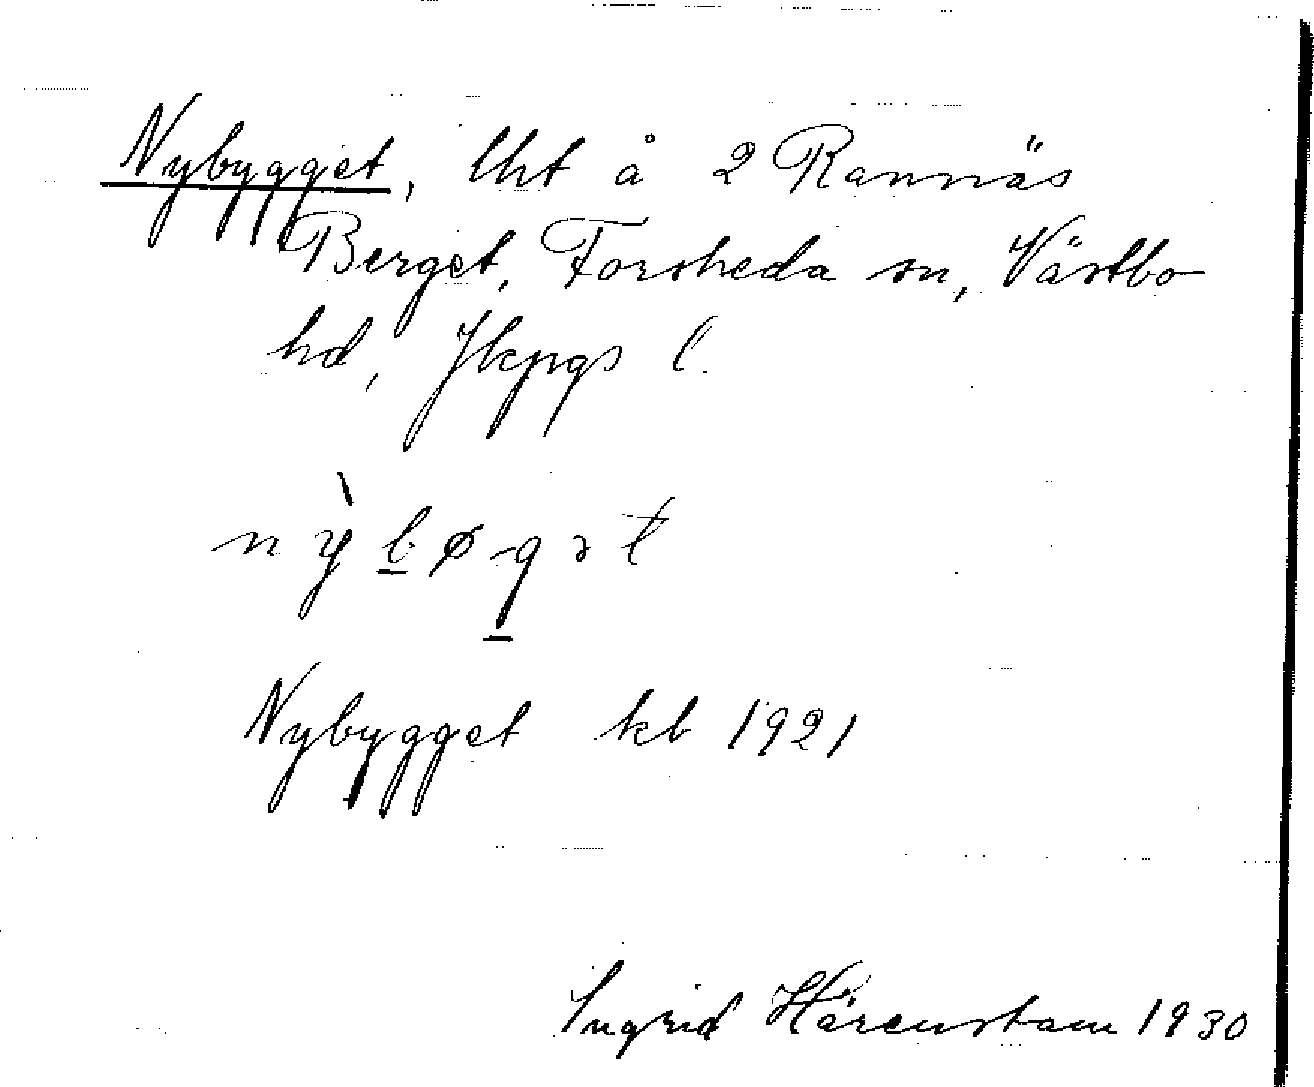 Nybygget, lht å 2 Rannäs
Berget, Forsheda sn, Västbo
hd, Jkpgs l.
nỳbøgət
Nybygget kb 1921
Ingrid Härenstam 1930